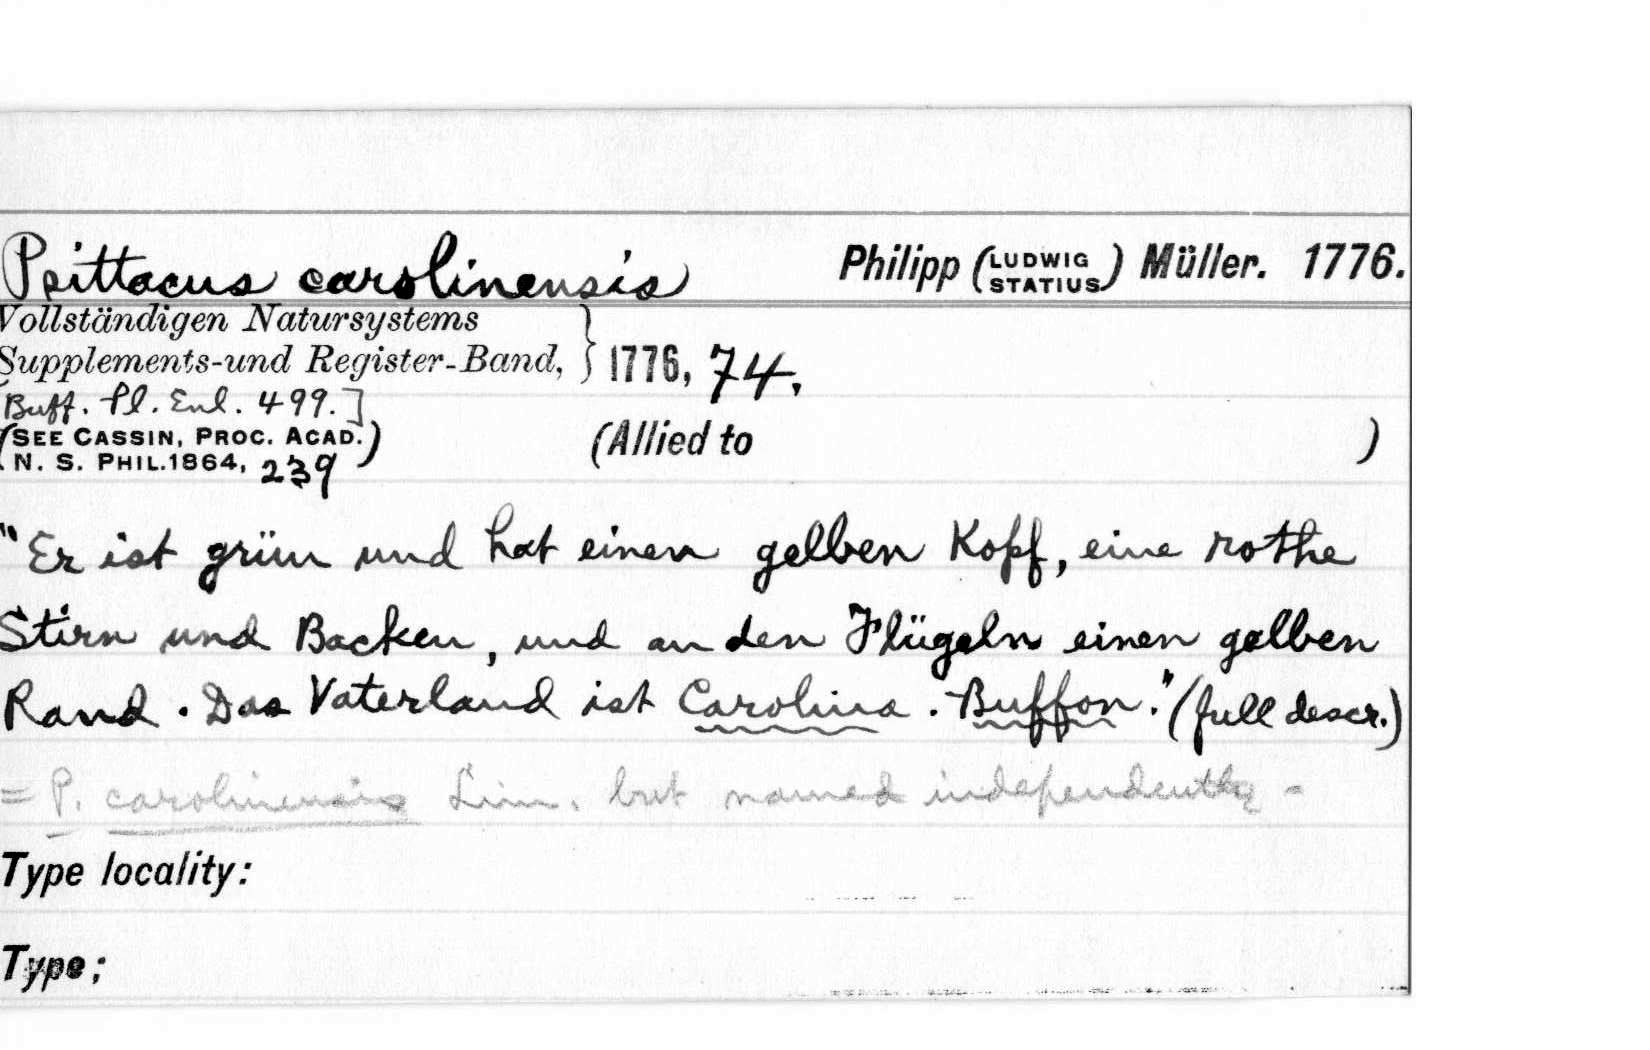 Psittacus carolinensis Philipp (LUDWIG STATIUS) Müller. 1776.
Vollständigen Natursystems
Supplements-und Register-Band, } 1776, 74.
[Buff. Pl. Enl. 499.]
(SEE CASSIN, PROC. ACAD.) (Allied to )
N. S. PHIL. 1864, 239
"Er ist grün und hat einen gelben Kopf, eine rothe
Stirn und Backen, und an den Flügeln einen gelben
Rand. Das Vaterland ist Carolina. Buffon." (full descr.)
= P. carolinensis Linn. but named independently -
Type locality:
Type;